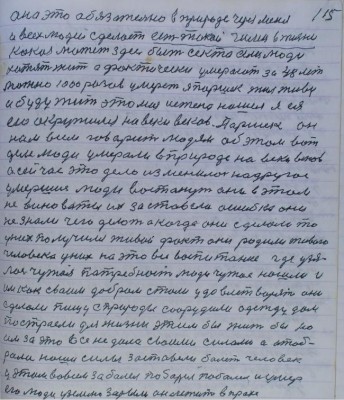 115
она это обязательно в природе через меня
и всех людей сделает чисть в жизни
какая может здесь быть секта если люди
хотят жит а фактически умерают за 48 лет
можно 1000 раз умереть я паршек жил живу
и буду жит это моя истена нашел я ея
его окружила на веки веков. Паршек он
нам всем говорит людям об этом вот
чем люди умерали в природе на веки веков
а сейчас это дело изменилос на другое
умершие люди востанут они в этом
не виноваты их заставела ошибка они
не знали чего делат а когда они сделали то
у них получили живой факт они родили живого
человека у них на это все воспитание где взя-
лос чужая патребност люди чужое нашли и
им как своим добром стали удовлетворят они
сделали пищу с природы соорудили одежду дом
построели для жизни этим бы жит бы но
им за это все не дала своими силами а отоб-
рала ноши силы заставела болет человек
у этом во всем заболел побалел побалел и умер
его люди у землю зарыли он лежит в прахе